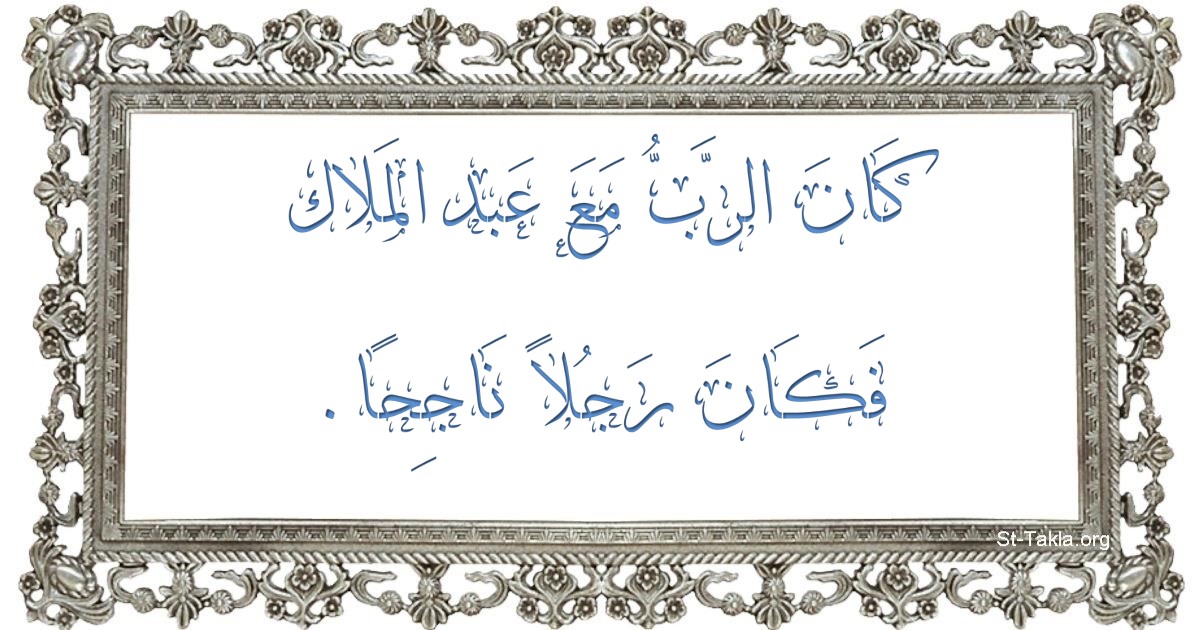 كَانَ الرَّبُّ مَعَ عَبْد الْمَلَاك
فَكَانَ رَجُلاً نَاجِحًا .
St-Takla.org